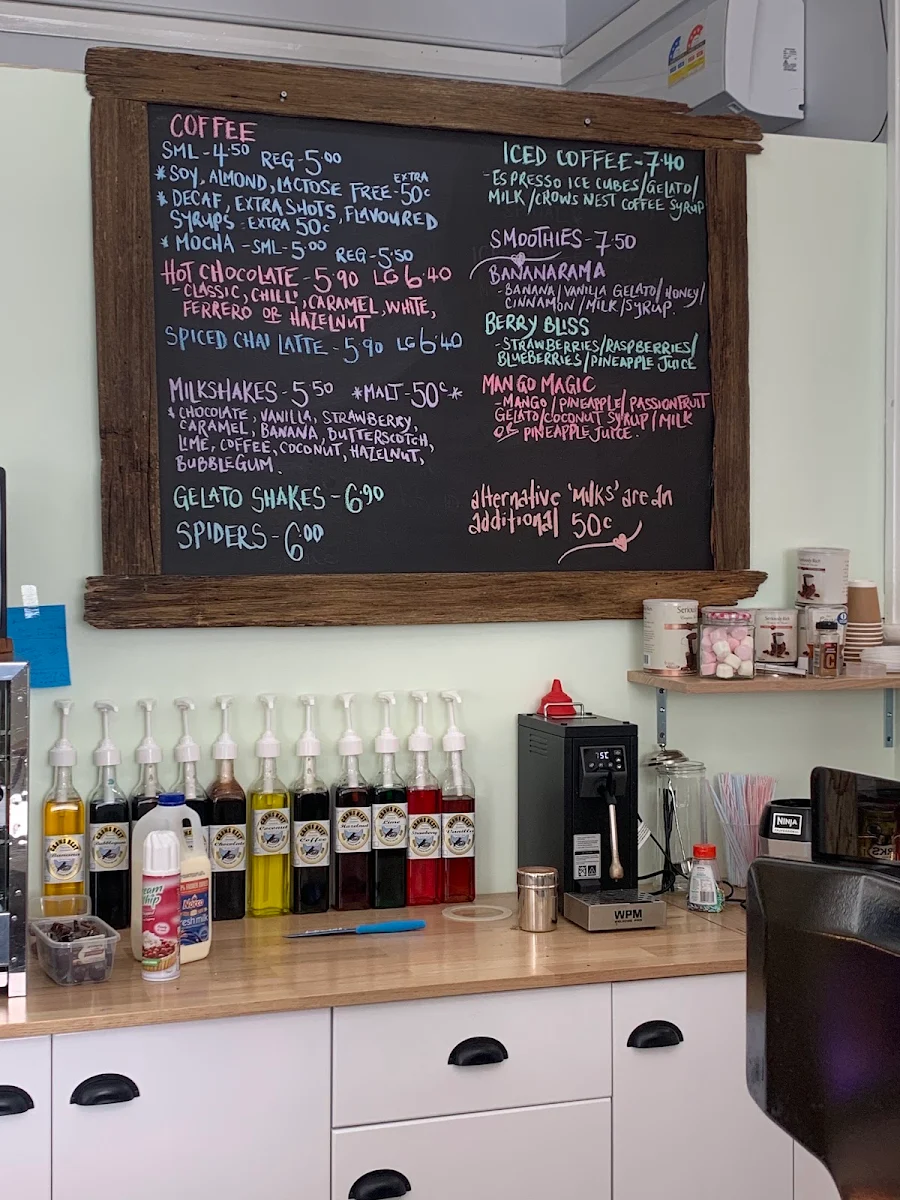 COFFEE
SML - 4.50 REG - 5.00
* SOY, ALMOND, LACTOSE FREE - EXTRA 50c
* DECAF, EXTRA SHOTS, FLAVOURED
SYRUPS - EXTRA 50c
* MOCHA - SML - 5.00 REG - 5.50
HOT CHOCOLATE - 5.90 LG 6.40
- CLASSIC, CHILLI, CARAMEL, WHITE,
FERRERO OR HAZELNUT
SPICED CHAI LATTE - 5.90 LG 6.40
MILKSHAKES - 5.50 *MALT - 50c *
* CHOCOLATE, VANILLA, STRAWBERRY,
CARAMEL, BANANA, BUTTERSCOTCH,
LIME, COFFEE, COCONUT, HAZELNUT,
BUBBLEGUM.
GELATO SHAKES - 6.90
SPIDERS - 6.00
ICED COFFEE - 7.40
- ESPRESSO ICE CUBES/GELATO/
MILK/CROWS NEST COFFEE SYRUP
SMOOTHIES - 7.50
BANANARAMA
- BANANA/VANILLA GELATO/HONEY/
CINNAMON/MILK/SYRUP.
BERRY BLISS
- STRAWBERRIES/RASPBERRIES/
BLUEBERRIES/PINEAPPLE JUICE
MANGO MAGIC
- MANGO/PINEAPPLE/PASSIONFRUIT
GELATO/COCONUT SYRUP/MILK
OR PINEAPPLE JUICE.
alternative 'MILKS' are an
additional 50c
Banana
Bubblegum
Chocolate
Coconut
Coffee
Hazelnut
Lime
Strawberry
Vanilla
WPM
NINJA